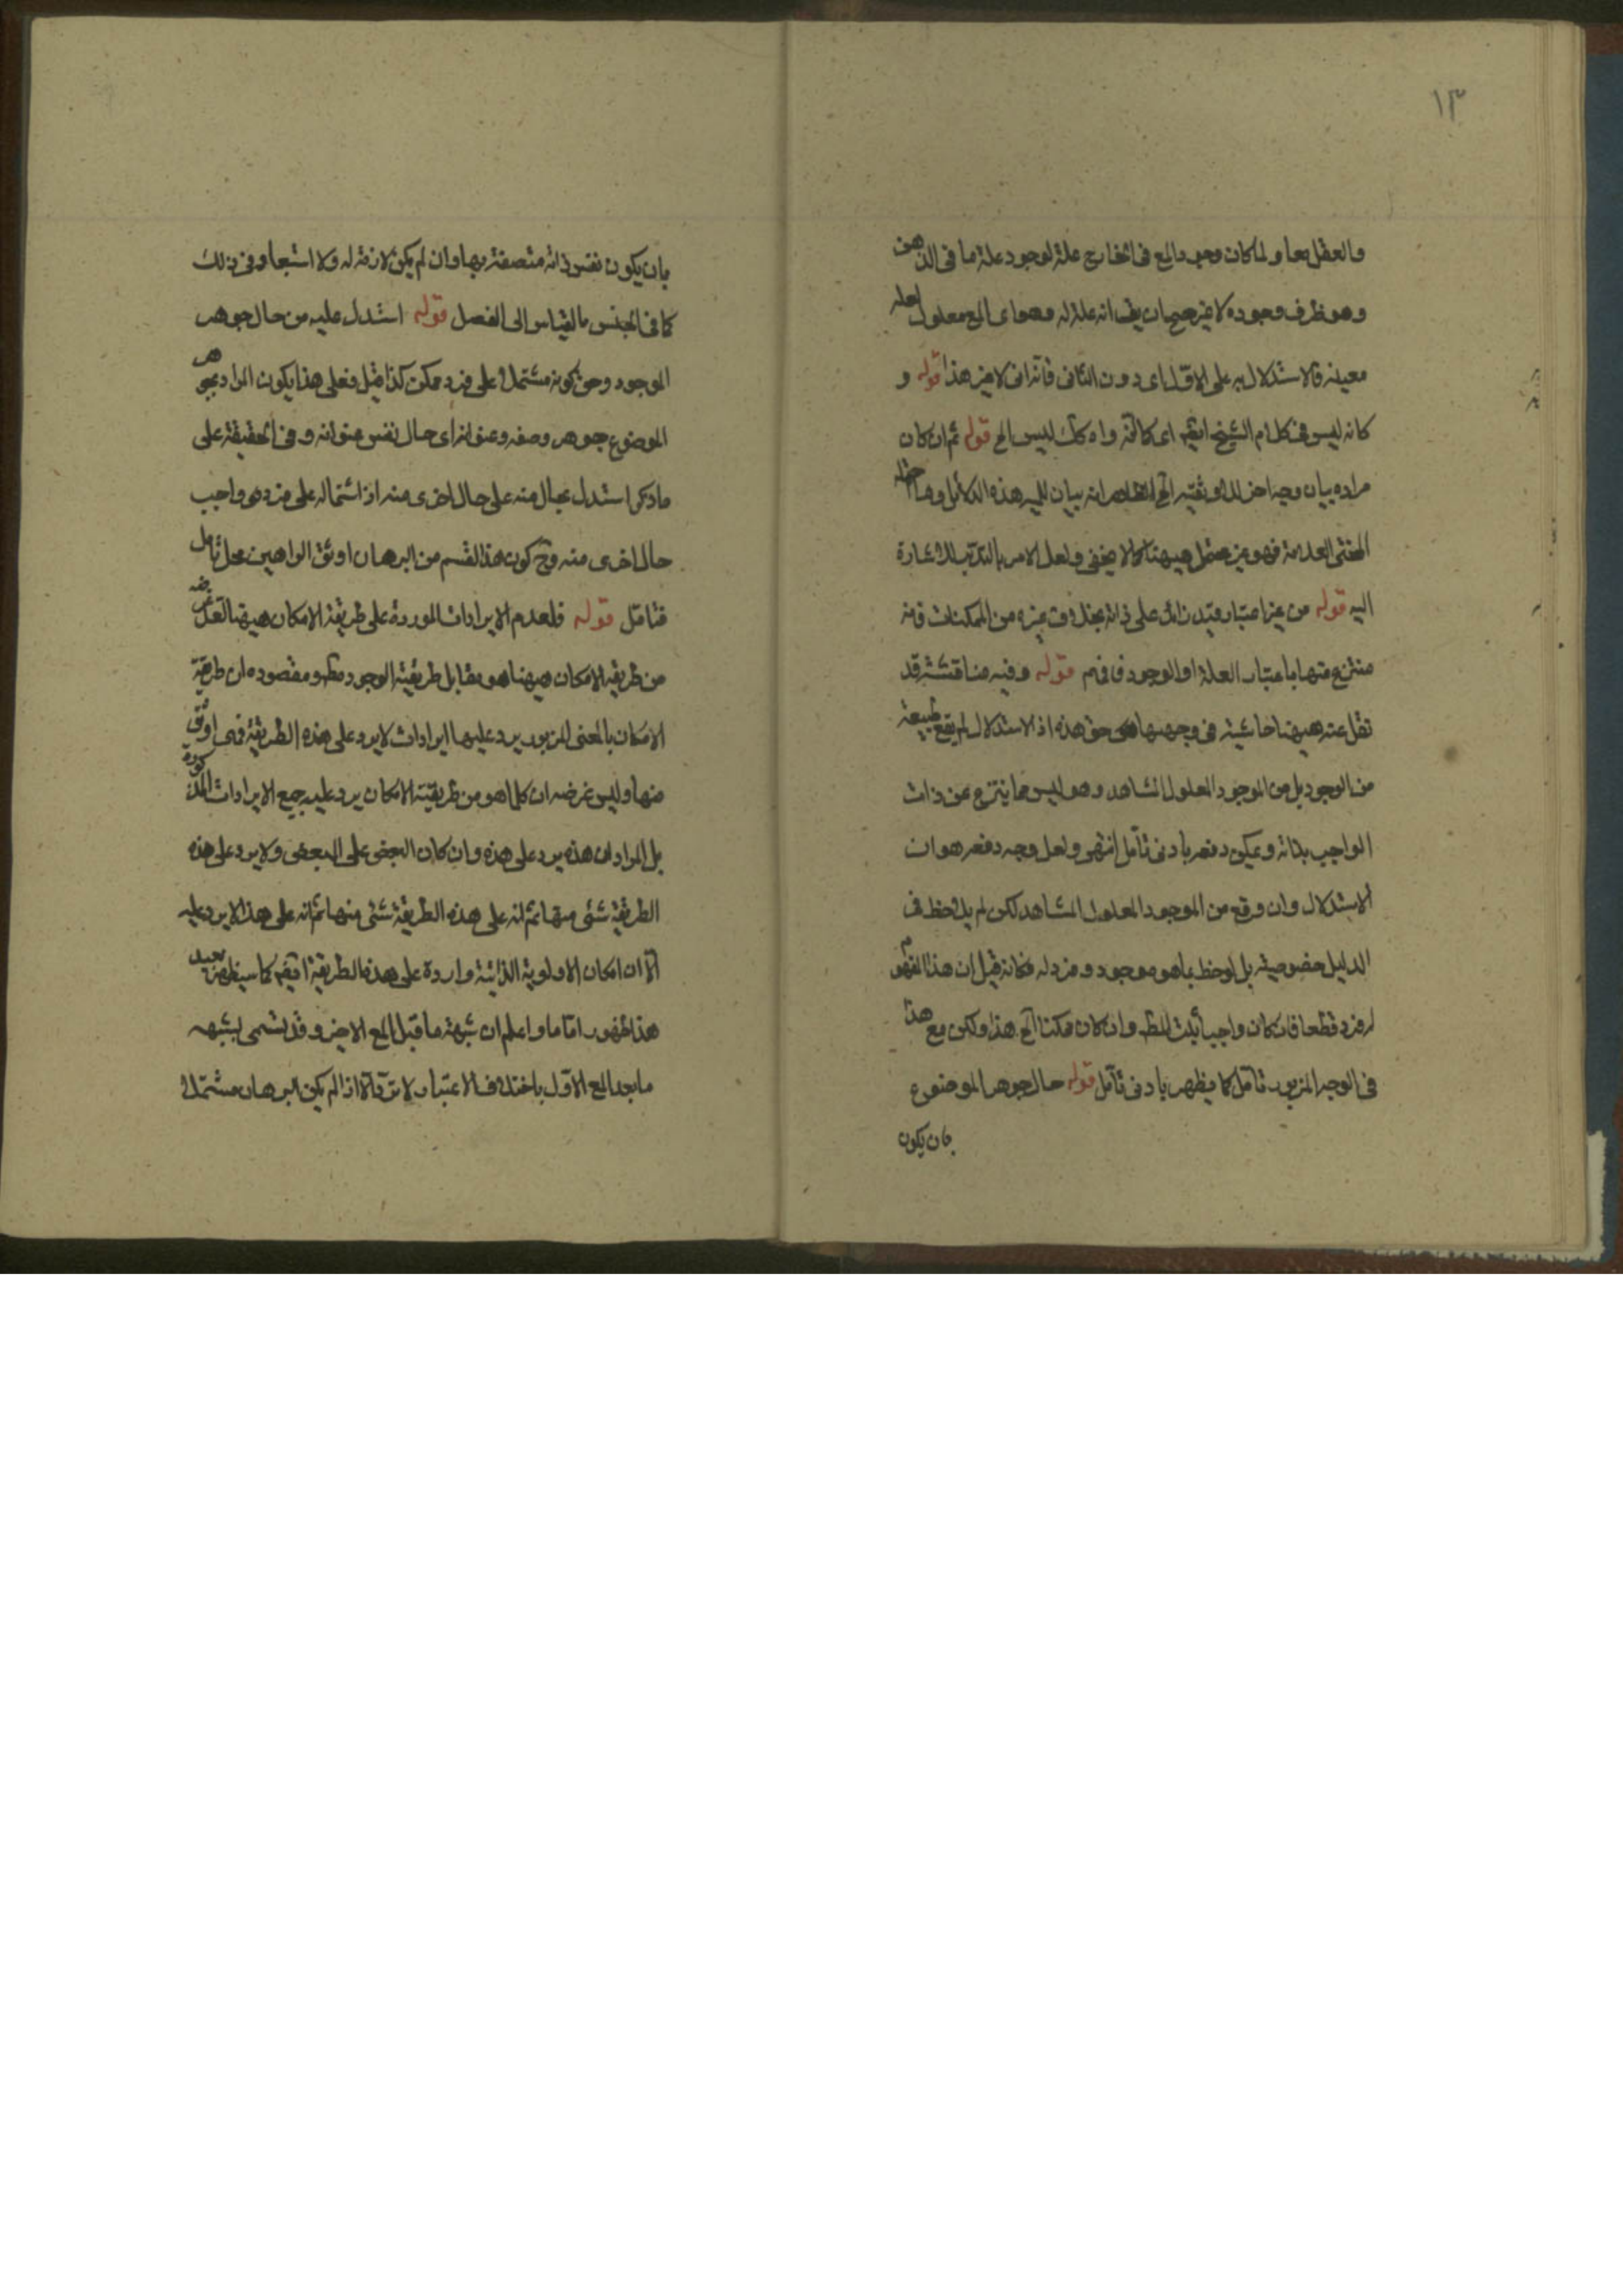 ١٣
والعقل معا ولما كان وجود المع فى الخارج علة لوجود علة ما فى الذهن
وهو ظرف وجوده لا غير صح ان يقـ انه علة له وهو اى المع معلول لعلة
معينة فالاستدلال به على الاول اى دون الثانى فانه انى لا غير هذا قوله و
كانه ليس فى كلام الشيخ ايضم اى كانه ليس الخ قوله ثم ان كان
مراده بيان وجه اخر للاوثقية الخ الظاهر انه بيان هذه الدلائل
المحشى العلامة فهو غير محتمل ههنا كما لا يخفى ولعل الامر بالتدبر للاشارة
اليه قوله من غير اعتبار قيد زائد على ذاته بخلاف غيره من الممكنات فانه
منتزع منها باعتبار العلة او الوجود فافهم قوله وفيه مناقشة قد
نقل عنه ههنا حاشية فى وجهها هى حق هذه اذ الاستدلال لم يقع طبيعة
من الوجود بل من الموجود المعلول المشاهد وهو ليس مما ينتزع عن ذات
الواجب بذاته ويمكن دفعه بادنى تأمل انتهى ولعل وجه دفعه هو ان
الاستدلال وان وقع من الموجود المعلول المشاهد لكن لم يلاحظ فى
الدليل خصوصيته بل لوحظ بما هو موجود وفرد له فكانه قيل ان هذا المفهوم
له فرد قطعا فان كان واجبا ثبت المطـ وان كان ممكنا الخ هذا ولكن مع هذا
فى الوجه المزبور تأمل كما يظهر بادنى تأمل قوله حال جوهر الموضوع
بان يكون
بان يكون نفس ذاته متصفة بها وان لم يكن لازمة له ولا استبعاد فى ذلك
كما فى الجنس بالقياس الى الفصل قوله استدل عليه من حال جوهر
الموجود وهو كونه مشتملا على فرد ممكن كذا قيل فعلى هذا يكون المراد بجوهر
الموضوع جوهر وصفه وعنوانه اى حال نفس عنوانه وفى الحقيقة على
ما ذكر استدل بحال منه على حال اخرى منه اذ اشتماله على فرد هو واجب
حال اخرى منه وح كون هذا القسم من البرهان اوثق البراهين محل تامل
فتامل قوله فلعدم الايرادات الموردة على طريقة الامكان ههنا لعل غرضه
من طريقة الامكان ههنا هو مقابل طريقة الوجود مطـ ومقصوده ان طريقة
الامكان بالمعنى المزبور يرد عليها ايرادات لا يرد على هذه الطريقة فهى اوثق
منها وليس غرضه ان كلما هو من طريقة الامكان يرد عليه جميع الايرادات المذكورة
بل المراد ان هذه يرد على هذه وان كان البعض على البعض ولا يرد على هذه
الطريقة شئ منها ثم انه على هذه الطريقة شئ منها ثم انه على هذا لا يرد عليه
الا ان امكان الاولوية الذاتية واردة على هذه الطريقة ايضم كما سيظهر بعيد
هذا ظهورا تاما واعلم ان شبهة ما قبل المع الاخير وقد يسمى بشبهه
ما بعد المع الاول باختلاف الاعتبار لا ترد الا اذا لم يكن البرهان مشتملا